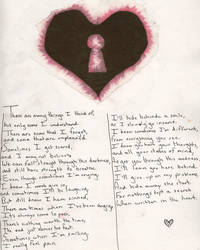 There are many things I think of,
but only some I understand.
There are some that I forget,
and some that are unexplained
Sometimes I get scared,
and I may not believe
We can fall straight through this darkness,
and still have strength to breathe.
Even though sometimes I'm crying
I know I must give in,
and sometimes I'll be laughing,
But still know I have sinned,
There are times when I've been angry
It's always come to pain,
There's nothing worth the time,
The end just down to fact
Sometimes when I'm smiling
I really feel pain
I'll hide behind a smile,
or I stand by insane
I know someday I'm different,
from everyone you see.
I know you hate your thoughts,
and all your states of mind,
As you go through this madness,
I'll leave you here behind.
I'll give up on my problems,
And hide away the start
For nothing but a search
when written in the heart.